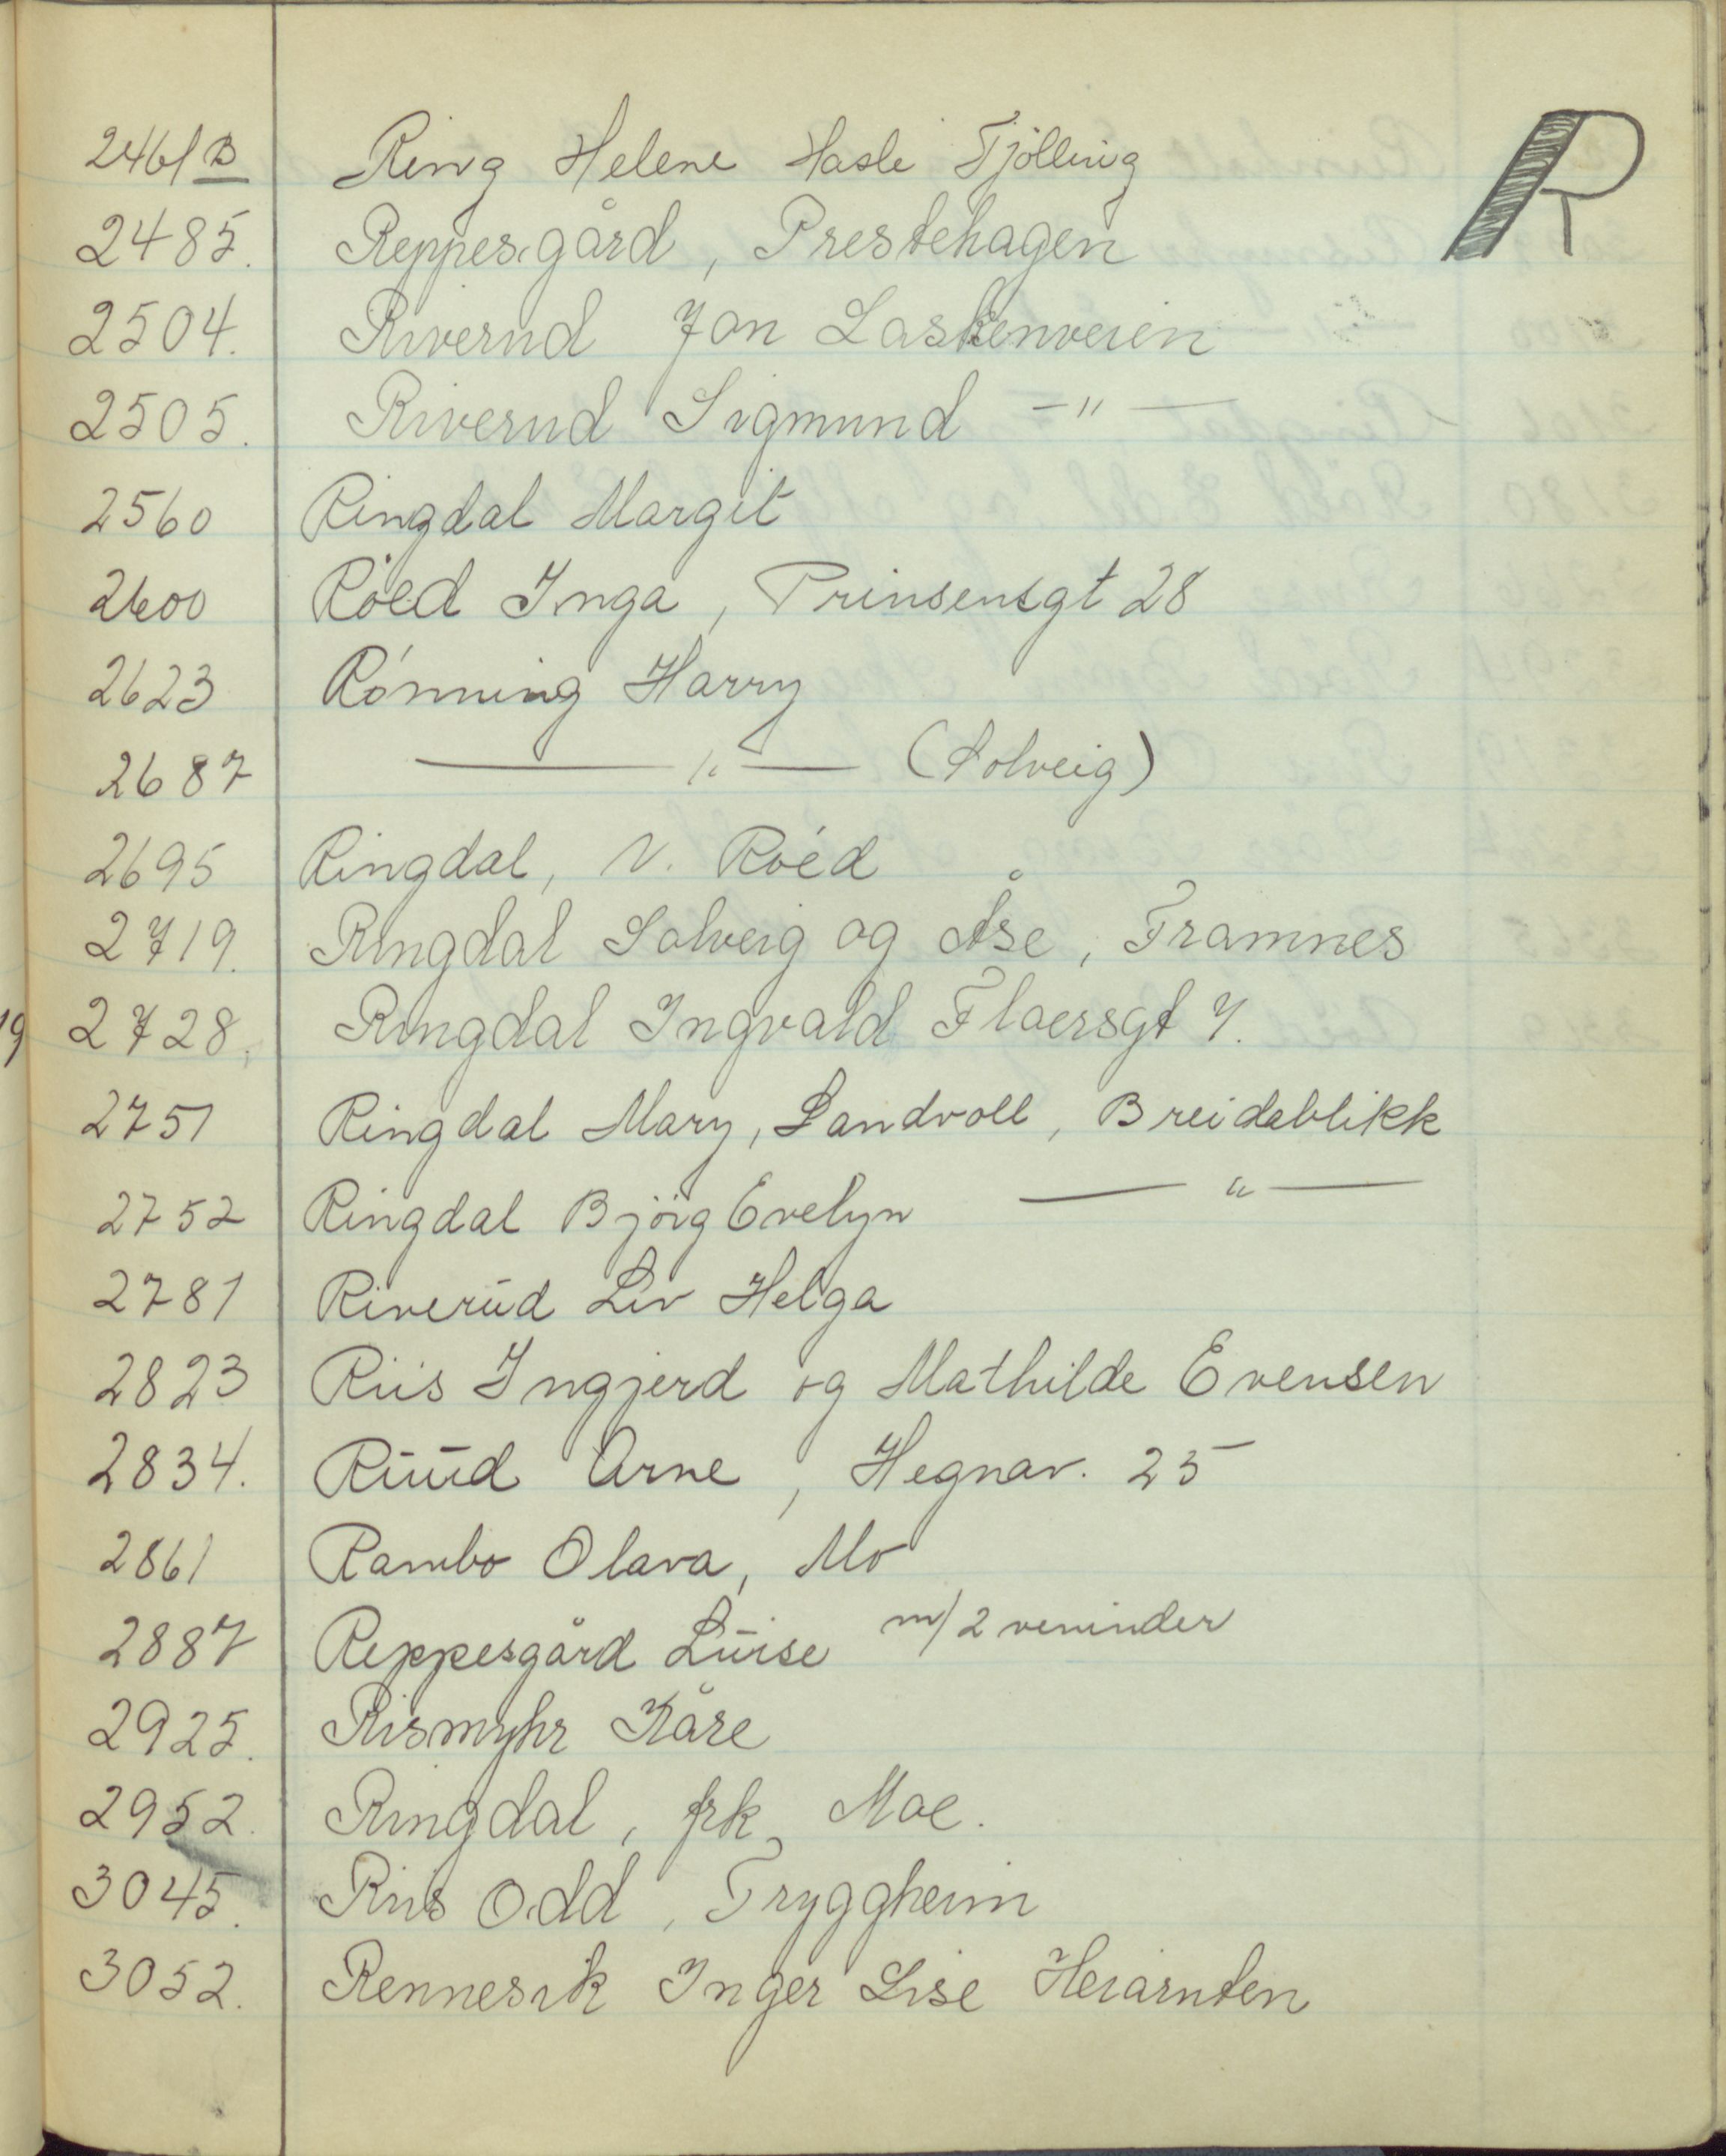 R
2461 B Ring Helene Hasle Tjölling
2485. Reppesgård, Prestehagen
2504. Riverud Jon Laskenveien
2505. Riverud Sigmund —"—
2560 Ringdal Margit
2600 Röed Inga, Prinsensgt 28
2623 Rónning Harry
2687 —"— (Solveig)
2695 Ringdal, V. Róed
2719. Ringdal Solveig og Åse, Framnes
2728. Ringdal Ingvald Floersgt 7.
2751 Ringdal Mary, Landvoll, Breidablikk
2752 Ringdal Björg Evelyn —"—
2781 Riverud Liv Helga
2823 Riis Ingjerd og Mathilde Evensen
2834. Ruud Arne, Hegnav. 25
2861 Rambo Olava, Mo
2887 Reppesgård Luise m/2 veninder
2925. Rismyhr Kåre
2952. Ringdal, frk, Moe.
3045. Riis Odd, Tryggheim
3052. Rennesik Inger Lise
19